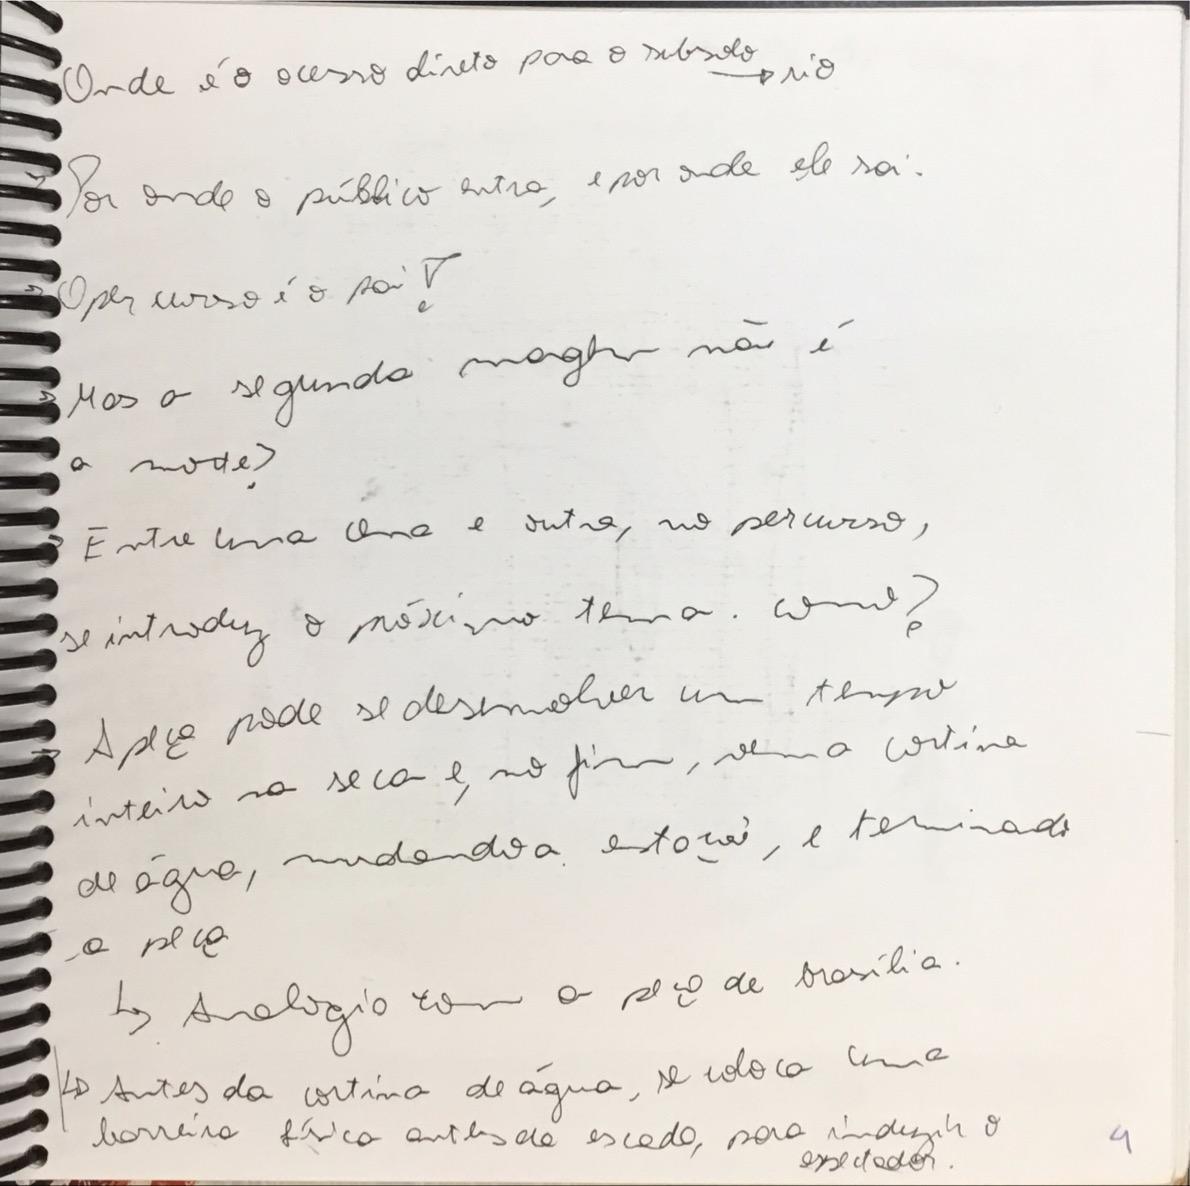 Onde é o acesso direto para o subsolo
→ rio
→ Por onde o público entra, e por onde ele sai.
→ O percurso é o pai?
→ Mas a segunda não é
a morte?
→ Entre uma cena e outra, no percurso,
se introduz o próximo tema. como?
→ A peça pode se desenvolver um tempo
inteiro na seca e, no fim, vem a cortina
de água, mudando a estação, e terminado
a peça
↳ Analogia com a peça de brasília.
↳ Antes da cortina de água, se coloca uma
barreira física antes da escada, para induzir o
espectador.
9